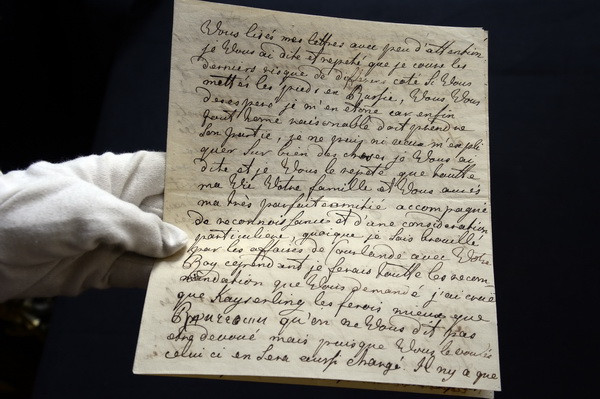 Vous lisés mes lettres avec peu d'attention
je Vous ai dite et repeté que je cours les
derniers risque de differens coté si Vous
mettés les pieds en Russie, Vous Vous
desesperé je m'en étone car enfin
tout home raisonable doit prendre
son partie, je ne puis ni veux m'expli
quer sur bien des choses je Vous ai
dite et je Vous le repeté que toutte
ma Vie Votre famille et Vous aurés
ma très parfaite amitié accompagné
de reconnoissance et d'une considération
particuliere, quoique je sois brouillé
par les affaires de Courlande avec Votre
Roy cependant je ferais toutte les recom-
mandation que Vous demandé j'ai crue
que Kayserling les ferois mieux que
qu'on ne Vous dit pas
etre devoué mais puisque Vous le voulés
celui ci en sera aussi chargé. Il ny a que